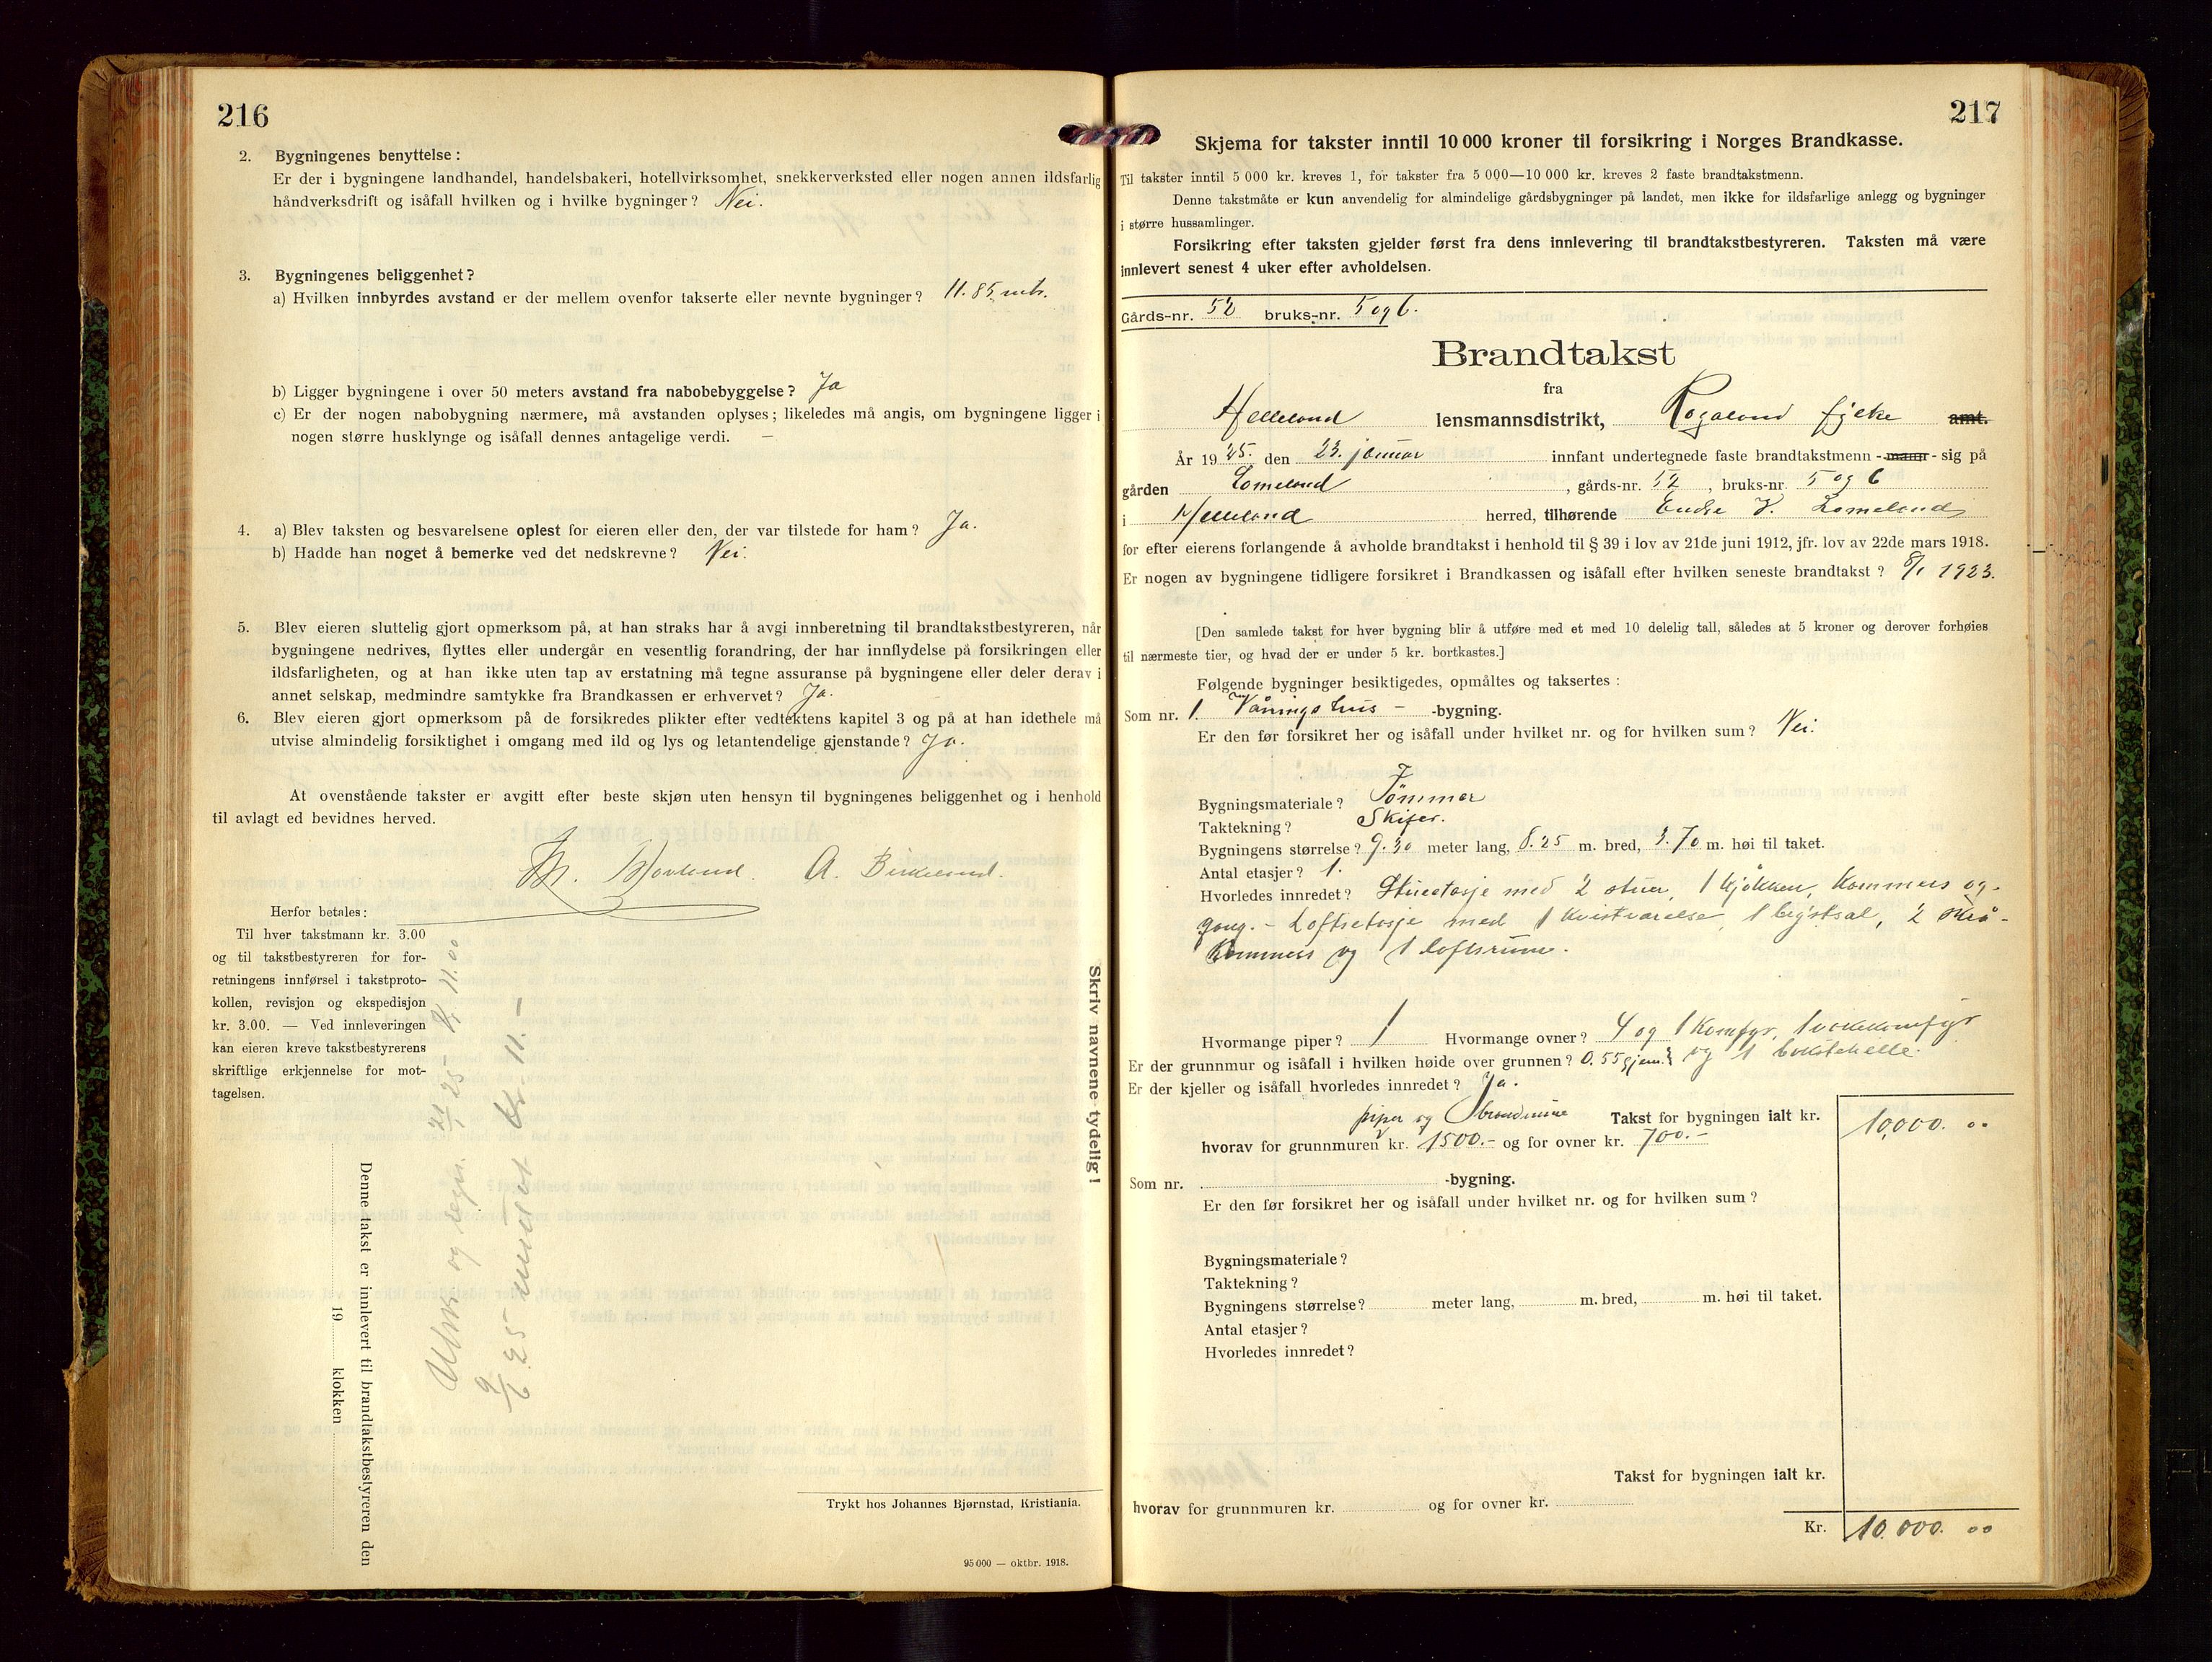 216
2. Bygningenes benyttelse:
Er der i bygningene landhandel, handelsbakeri, hotellvirksomhet, snekkerverksted eller nogen annen ildsfarlig
håndverksdrift og isåfall hvilken og i hvilke bygninger? Nei.
3. Bygningenes beliggenhet?
a) Hvilken innbyrdes avstand er der mellem ovenfor takserte eller nevnte bygninger? 11.85 mtr.
b) Ligger bygningene i over 50 meters avstand fra nabobebyggelse? Ja
c) Er der nogen nabobygning nærmere, må avstanden oplyses; likeledes må angis, om bygningene ligger i
nogen større husklynge og isåfall dennes antagelige verdi. —
4. a) Blev taksten og besvarelsene oplest for eieren eller den, der var tilstede for ham? Ja.
b) Hadde han noget å bemerke ved det nedskrevne? Nei.
5. Blev eieren sluttelig gjort opmerksom på, at han straks har å avgi innberetning til brandtakstbestyreren, når
bygningene nedrives, flyttes eller undergår en vesentlig forandring, der har innflydelse på forsikringen eller
ildsfarligheten, og at han ikke uten tap av erstatning må tegne assuranse på bygningene eller deler derav i
annet selskap, medmindre samtykke fra Brandkassen er erhvervet? Ja.
6. Blev eieren gjort opmerksom på de forsikredes plikter efter vedtektens kapitel 3 og på at han idethele må
utvise almindelig forsiktighet i omgang med ild og lys og letantendelige gjenstande? Ja.
At ovenstående takster er avgitt efter beste skjøn uten hensyn til bygningenes beliggenhet og i henhold
til avlagt ed bevidnes herved.
A. Birkeland.
Herfor betales:
Til hver takstmann kr. 3.00
og til takstbestyreren for for-
retningens innførsel i takstproto-
kollen, revisjon og ekspedisjon
kr. 3.00. — Ved innleveringen
kan eieren kreve takstbestyrerens
skriftlige erkjennelse for mot-
tagelsen.
Skriv navnene tydelig!
Denne takst er innlevert til brandtakstbestyreren den
19 klokken
og 25 kr 11.00
25 kr. 11.-
Trykt hos Johannes Bjørnstad, Kristiania.
95 000 — oktbr. 1918.
217
Skjema for takster inntil 10 000 kroner til forsikring i Norges Brandkasse.
Til takster inntil 5 000 kr. kreves 1, for takster fra 5 000—10 000 kr. kreves 2 faste brandtakstmenn.
Denne takstmåte er kun anvendelig for almindelige gårdsbygninger på landet, men ikke for ildsfarlige anlegg og bygninger
i større hussamlinger.
Forsikring efter taksten gjelder først fra dens innlevering til brandtakstbestyreren. Taksten må være
innlevert senest 4 uker efter avholdelsen.
Gårds-nr. 52 bruks-nr. 5 og 6.
Brandtakst
fra
Helleland lensmannsdistrikt, Rogaland fylke amt.
År 1925. den 23. januar innfant undertegnede faste brandtakstmenn - mann - sig på
gården Lomeland, gårds-nr. 52, bruks-nr. 5 og 6
i Helleland herred, tilhørende Endre V. Lomeland
for efter eierens forlangende å avholde brandtakst i henhold til § 39 i lov av 21de juni 1912, jfr. lov av 22de mars 1918.
Er nogen av bygningene tidligere forsikret i Brandkassen og isåfall efter hvilken seneste brandtakst? 8/1 1923.
[Den samlede takst for hver bygning blir å utføre med et med 10 delelig tall, således at 5 kroner og derover forhøies
til nærmeste tier, og hvad der er under 5 kr. bortkastes.]
Følgende bygninger besiktigedes, opmåltes og taksertes:
Som nr. 1. Våningshus - -bygning.
Er den før forsikret her og isåfall under hvilket nr. og for hvilken sum? Nei.
Bygningsmateriale? Tømmer
Taktekning? Skifer.
Bygningens størrelse? 9.30 meter lang, 8.25 m. bred, 3.70 m. høi til taket.
Antal etasjer? 1.
Hvorledes innredet? Stueetasje med 2 stuer, 1 kjøkken, kammers og
gang. - Loftsetasje med 1 kvistværelse, 1 , 2 skrå-
kammers og 1 loftsrum.
Hvormange piper? 1 Hvormange ovner? 4 og 1 komfyr,
Er der grunnmur og isåfall i hvilken høide over grunnen? 0.55 gjem. og 1
Er der kjeller og isåfall hvorledes innredet? Ja.
piper og brandmure Takst for bygningen ialt kr. 10,000.00
hvorav for grunnmuren kr. 1500.- og for ovner kr. 700.-
Som nr. -bygning.
Er den før forsikret her og isåfall under hvilket nr. og for hvilken sum?
Bygningsmateriale?
Taktekning?
Bygningens størrelse? meter lang, m. bred, m. høi til taket.
Antal etasjer?
Hvorledes innredet?
Takst for bygningen ialt kr.
hvorav for grunnmuren kr. og for ovner kr.
Kr. 10.000.00